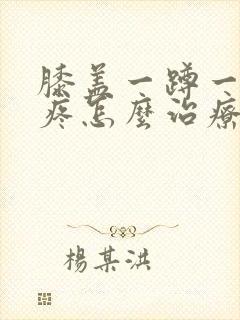 膝盖一蹲一
疼怎麼治療
楊某洪